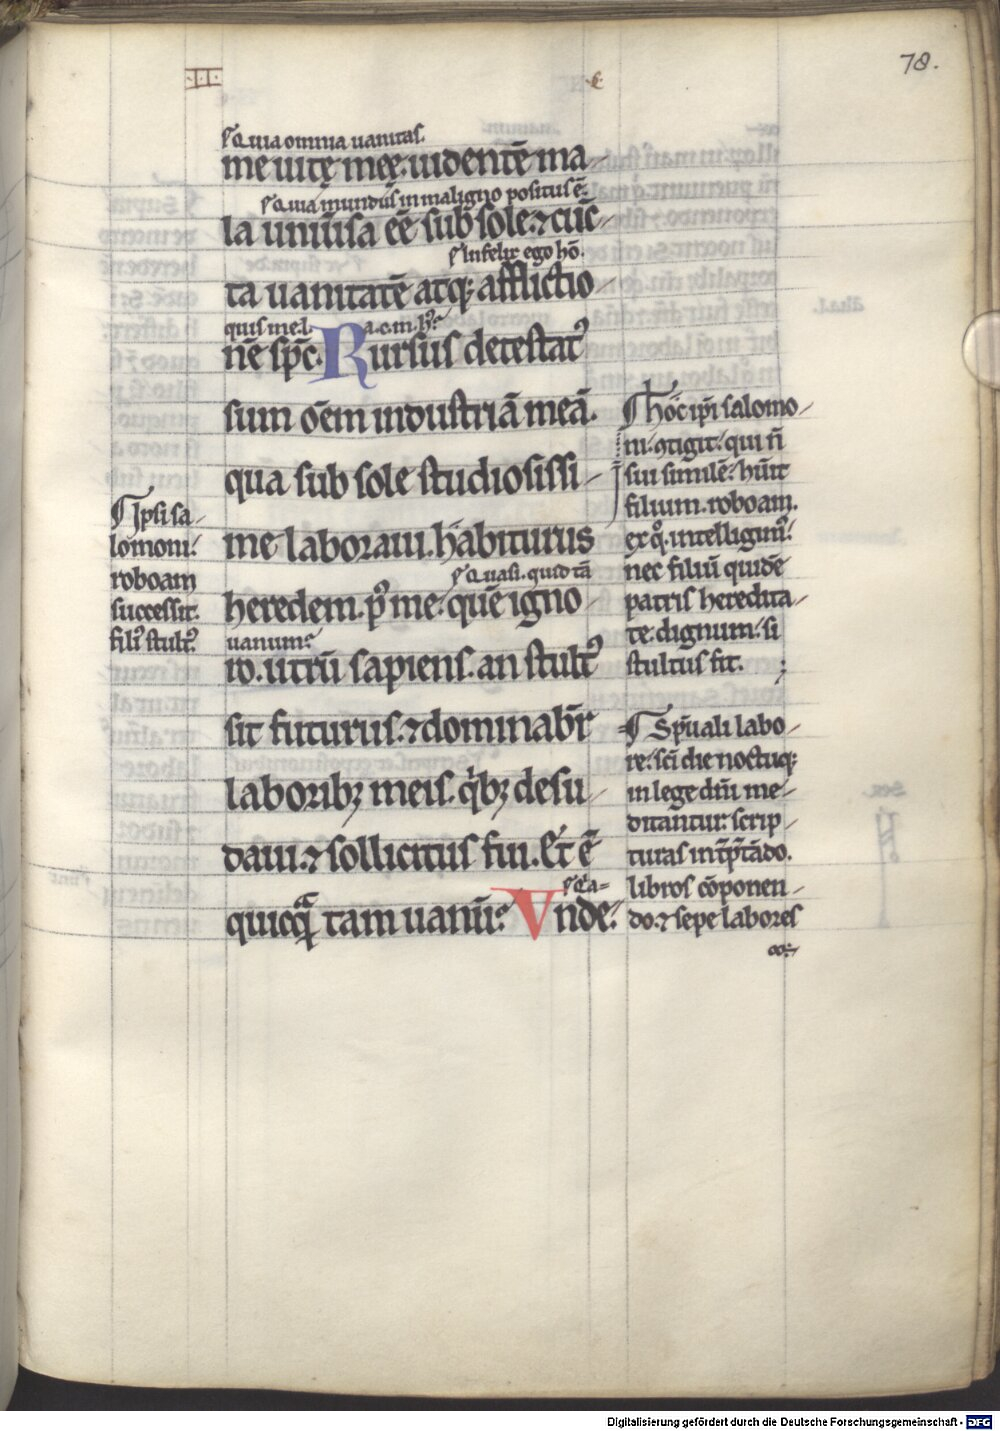 78.
·III·
Quia omnia uanitas.
me uitę meę. uidentē ma-
Quia mundus in maligno positus ē.
la uniũsa eē sub sole. ⁊ cũc-
Infelix ego hō.
ta uanitatē atq; afflictio-
quis me.l. a.c.m.h?
nē spc̄. Rursus detestat᷒
sum om̄em industriā meā.
qua sub sole studiosissi-
me laboraui. habiturus
Quasi. quid tā
heredem. p᷒ me. quē igno-
uanum?
ro. utrū sapiens. an stult᷒
sit futurus. ⁊ dominabr̄
laborib; meis. q̇b; desu-
daui. ⁊ sollicitus fui. Et ē
quicq̄ tam uanū? Vnde.
Ipsi sa-
lomoni.
roboam
successit.
fili᷒ stult᷒.
hoc ip̄i salomo-
ni. ꝯtigit. qui n̄
sui similē. hūit
filium. roboam.
ex q̊. intelligim᷒.
nec filiū quidē
patris heredita-
te. dignum. si
stultus sit.
Sp̄uali labo-
re. sc̄i die noctuq;
in lege dn̄i me-
ditantur. scrip-
turas int̄p̄tādo.
libros cōponen-
do. ⁊ sepe labores
Digitalisierung gefördert durch die Deutsche Forschungsgemeinschaft - DFG